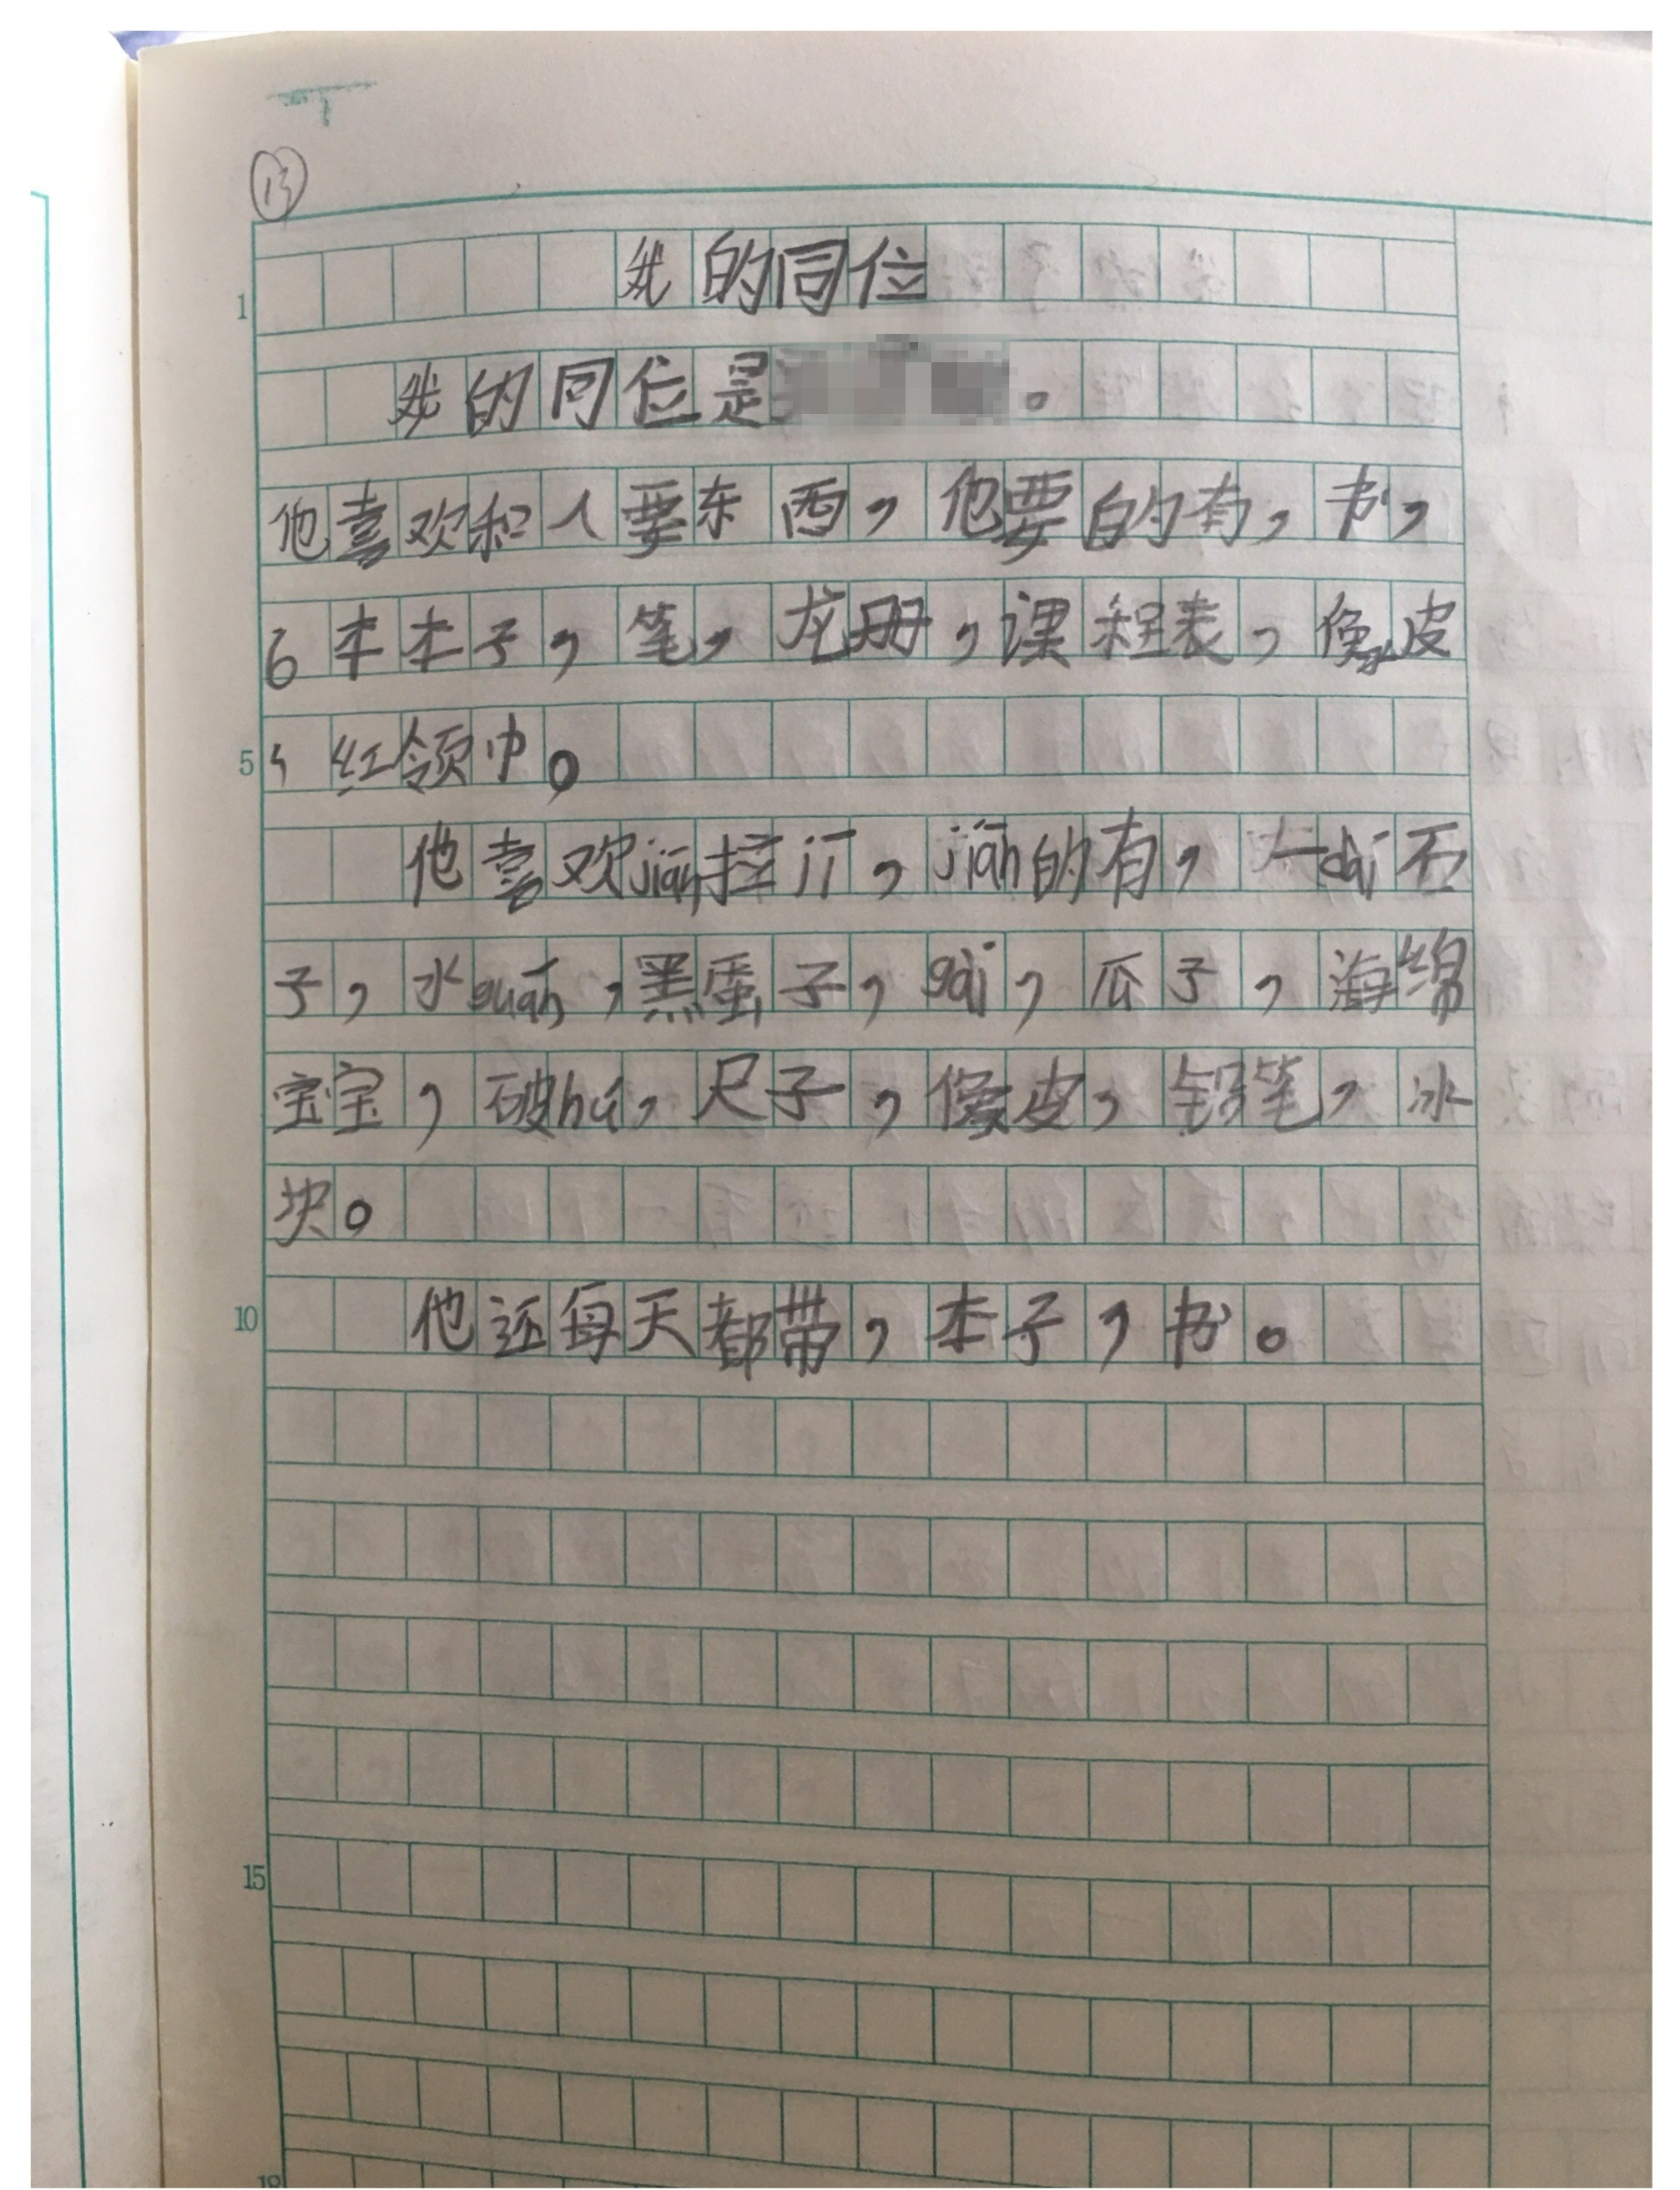 13
我的同位
我的同位是。
他喜欢和人要东西,他要的有,书,
6本本子,笔,龙册,课程表,像皮
,红领巾。
他喜欢jiǎn拉jī,jiǎn的有,一dài石
子,水guǎn,黑蛋子,gài,瓜子,海绵
宝宝,破hú,尺子,像皮,铅笔,冰
块。
他还每天都带,本子,书。
1
5
10
15
18